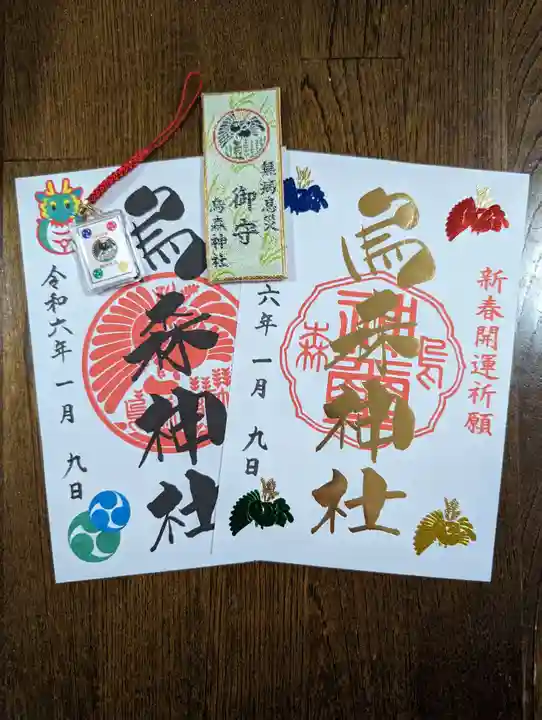 無病息災
御守
烏森神社
烏森神社
令和六年一月九日
新春開運祈願
烏森神社
六年一月九日
烏
森